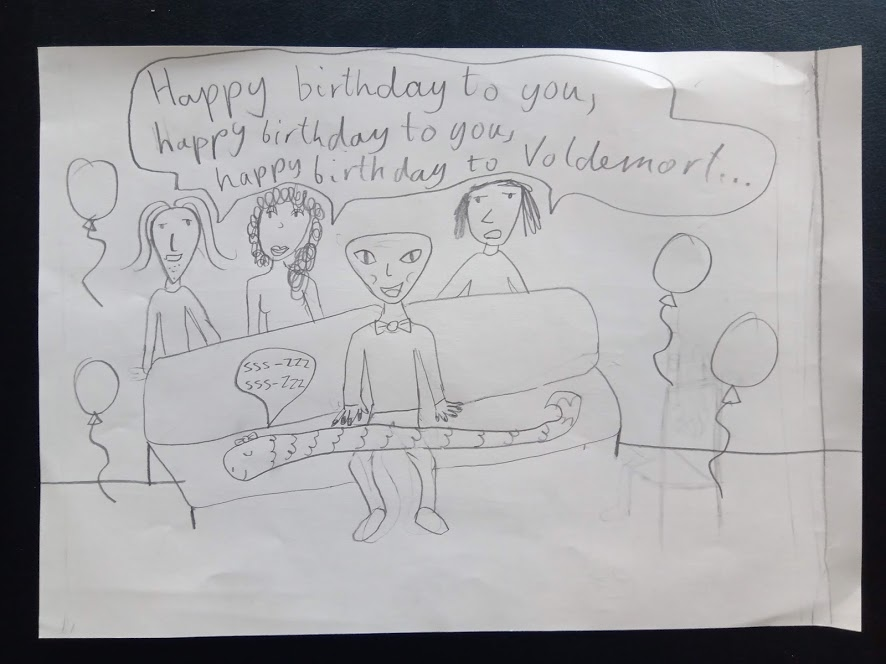 Happy birthday to you,
happy birthday to you,
happy birthday to Voldemort...
sss-zzz
sss-zzz